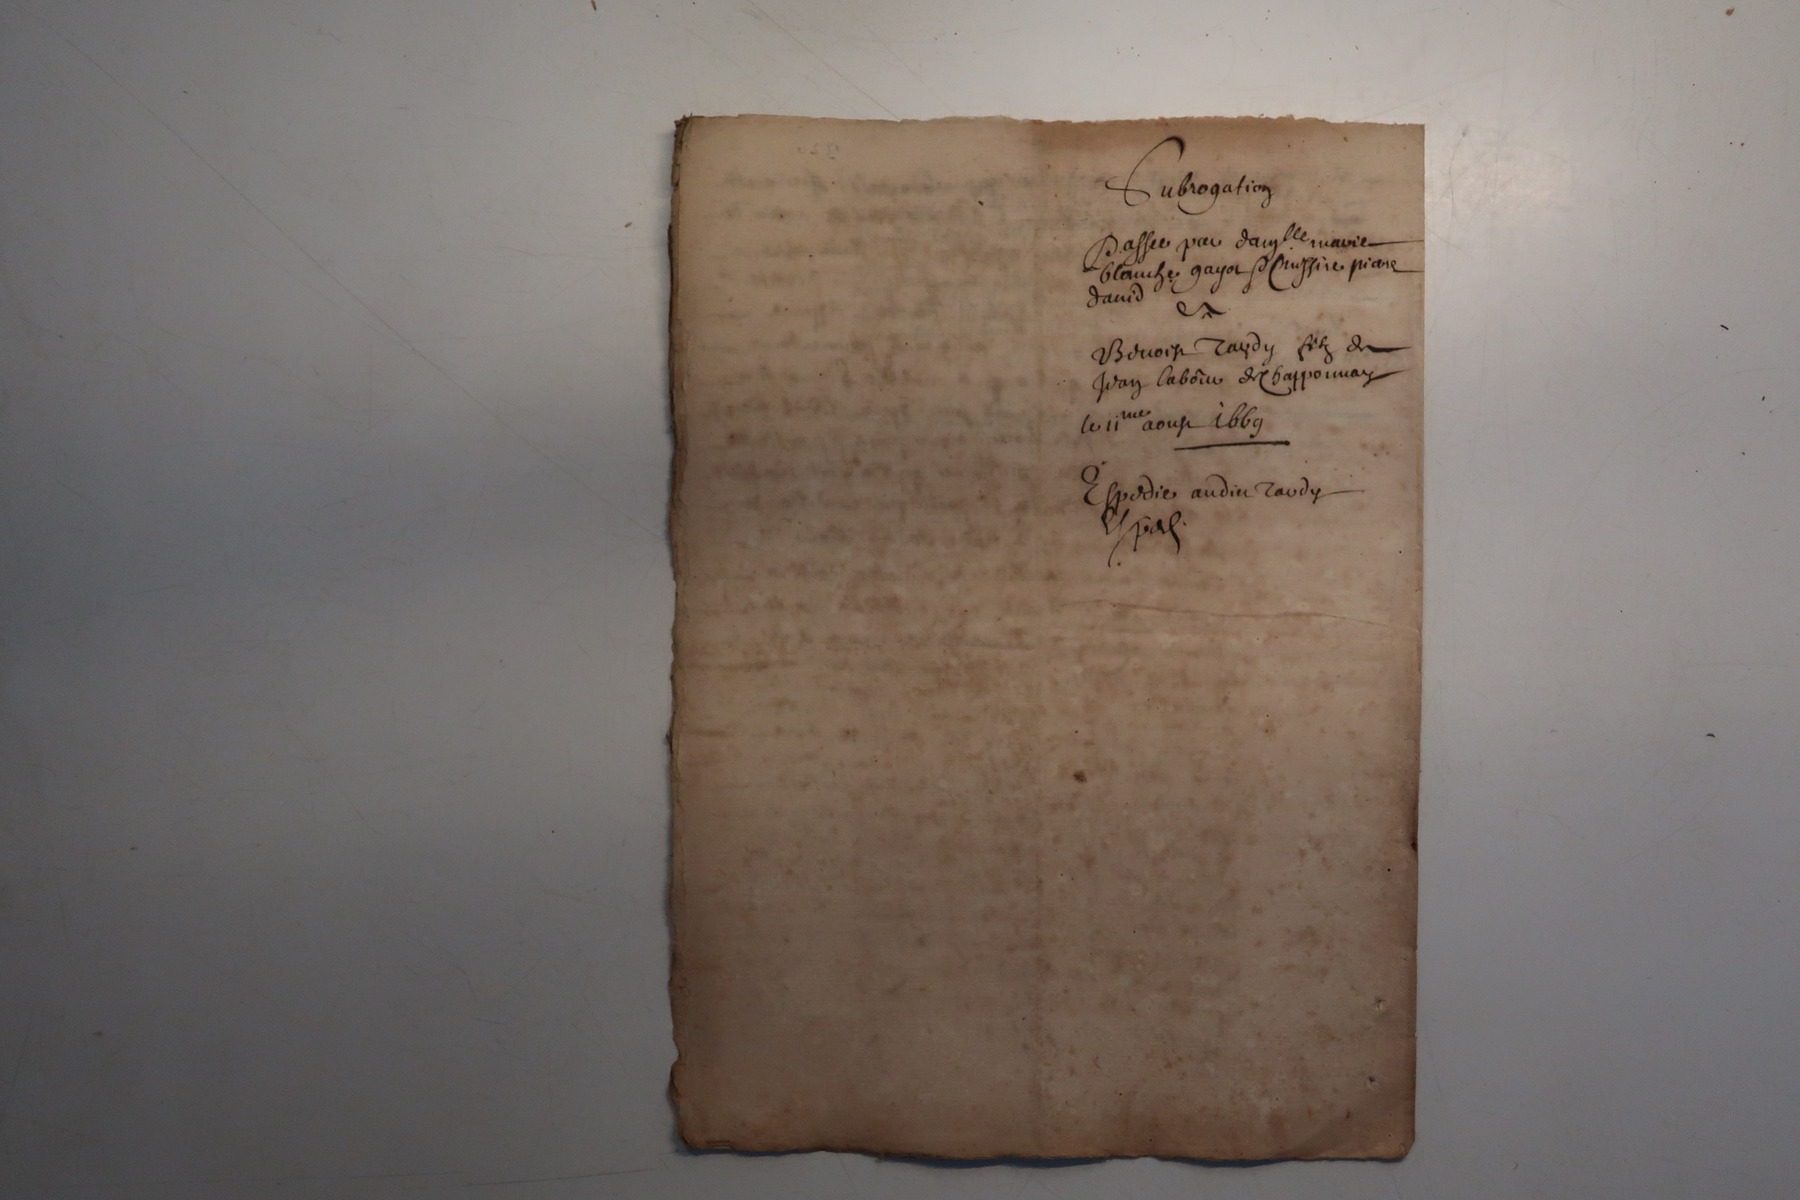 Subrogation
Passee par dam^lle marie
blanche gayot & Messire piere
david
Et
Benoist Tardy filz de
Jean labour de Chapponnay
le 11^me aoust 1669
Expedie audit Tardy
Exped.